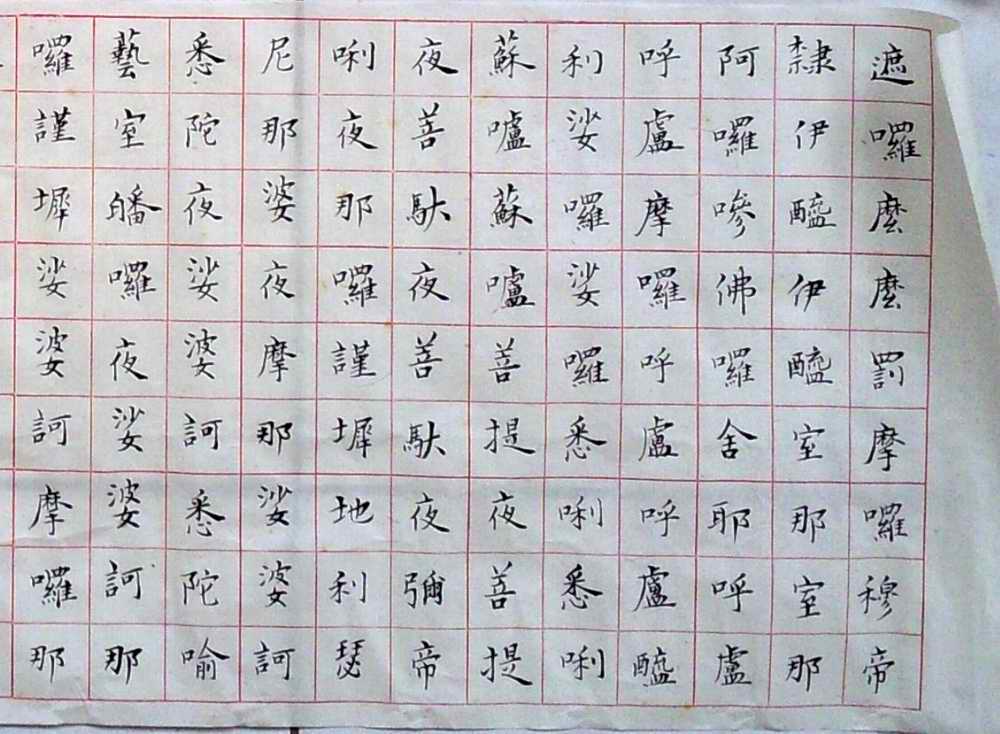 遮囉麼麼罰摩囉穆帝
隸伊醯伊醯室那室那
阿囉嘇佛囉舍耶呼盧
呼盧摩囉呼盧呼盧醯
利娑囉娑囉悉唎悉唎
蘇嚧蘇嚧菩提夜菩提
夜菩馱夜菩馱夜彌帝
唎夜那囉謹墀地利瑟
尼那婆夜摩那娑婆訶
悉陀夜娑婆訶悉陀喻
藝室皤囉夜娑婆訶那
囉謹墀娑婆訶摩囉那